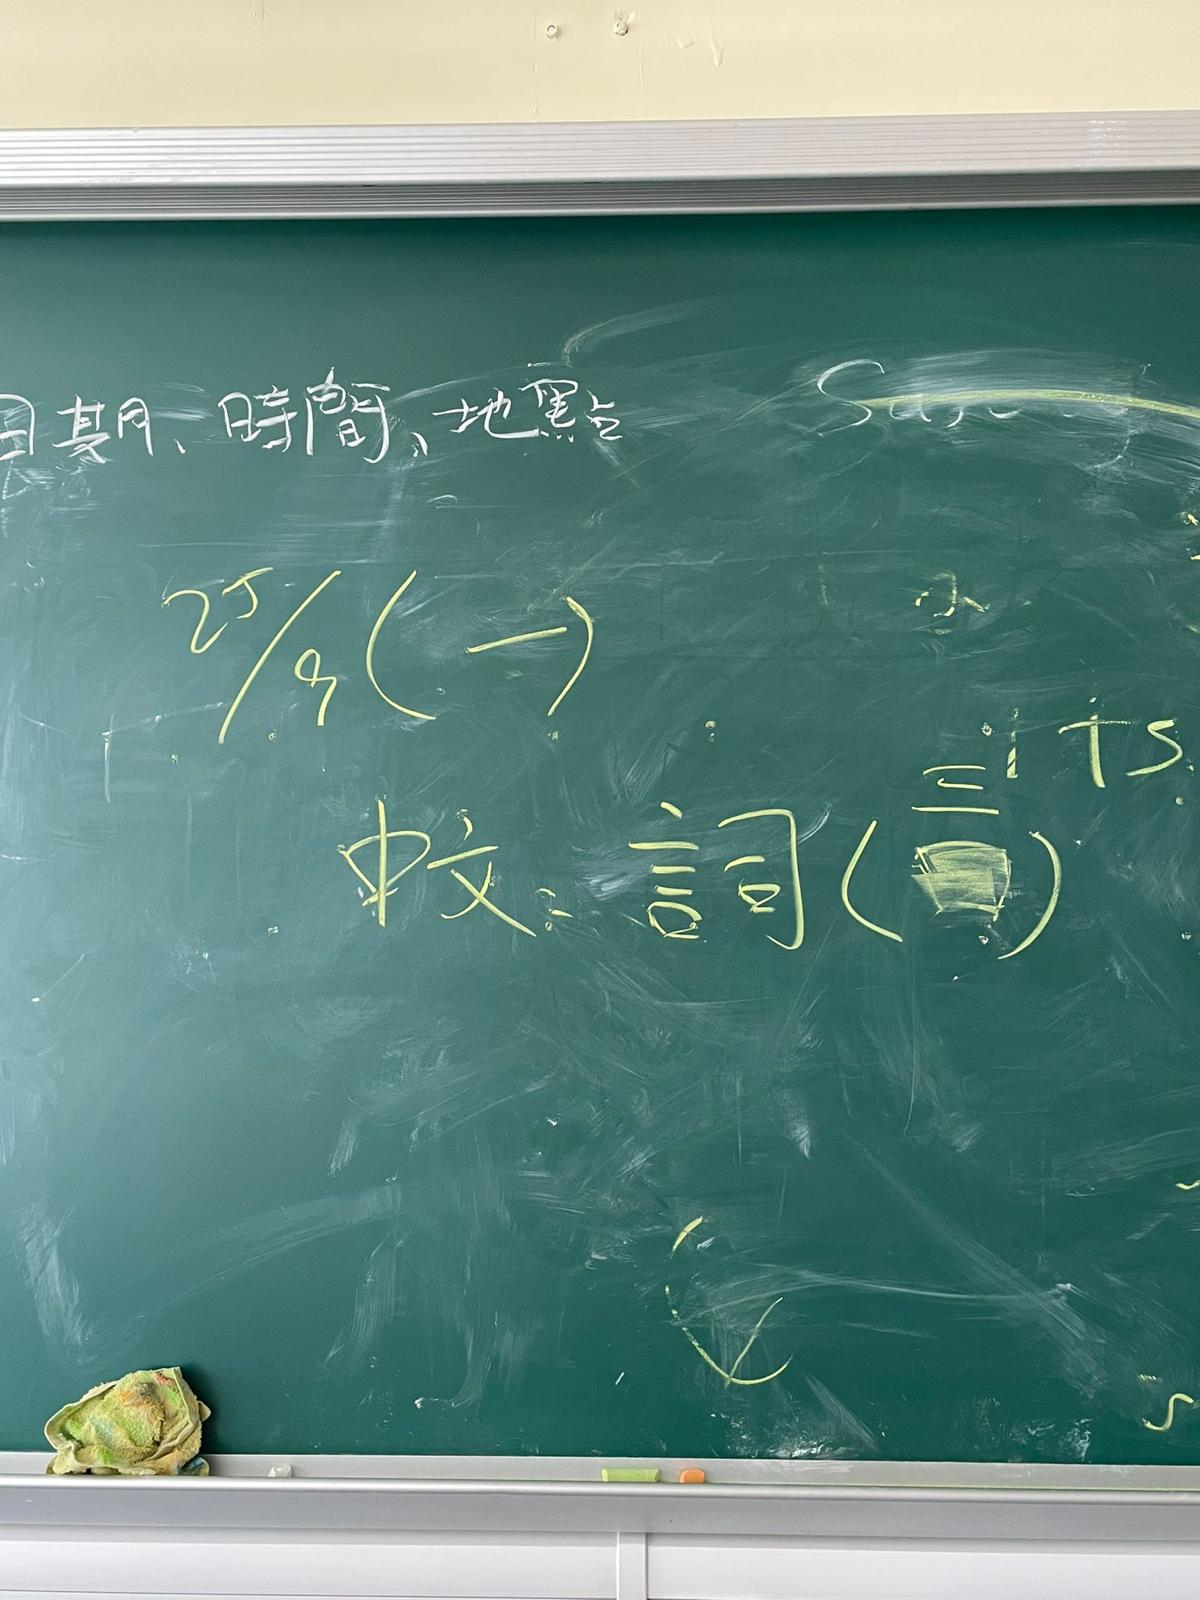 日期、時間、地點
25/9(一)
中文：詞(三)